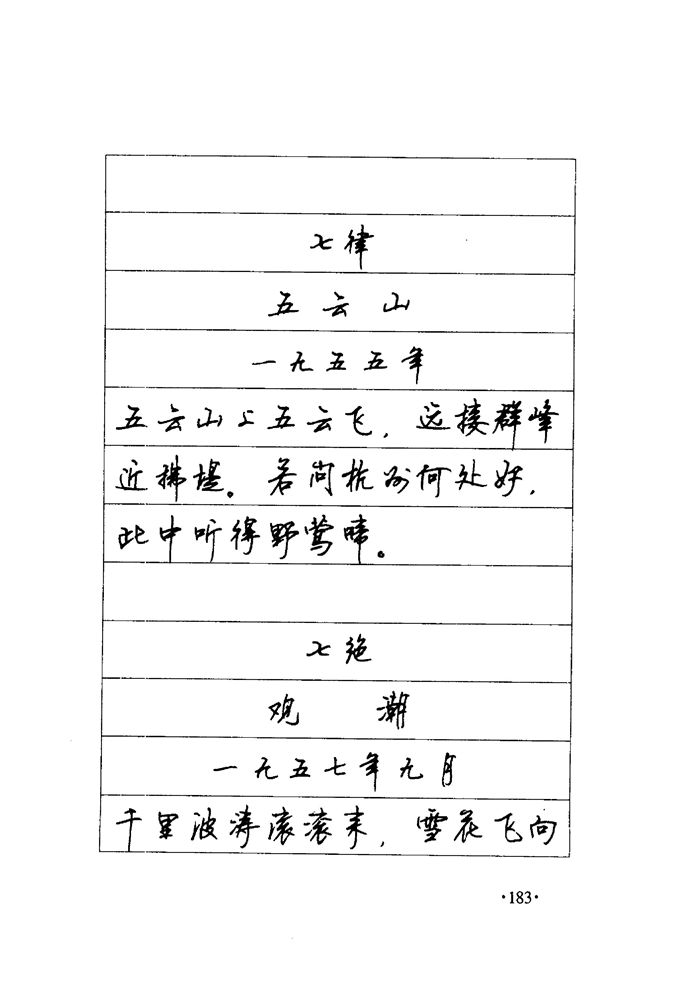 七律
五云山
一九五五年
五云山上五云飞，远接群峰
近拂堤。若问杭州何处好，
此中听得野莺啼。
七绝
观潮
一九五七年九月
千里波涛滚滚来，雪花飞向
·183·